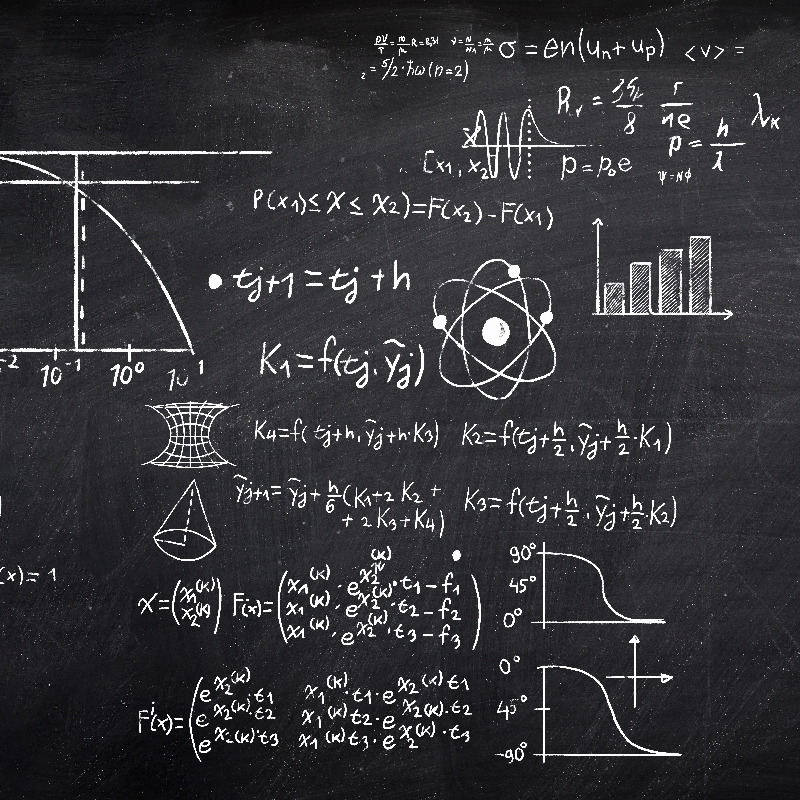 σ = en(uₙ + uₚ) <v> =
= 5/2·ħω (n=2)
8
r
ne
p = h
λ
[x₁, x₂
p = p₀e
ψ=Nϕ
P(x₁)≤ X ≤ X₂)=F(x₂) - F(x₁)
tj+1 = tj + h
K₁ = f(tj, ỹj)
10⁻¹ 10⁰ 10¹
K₄=f( tj+h, ỹj+h·K₃) K₂=f(tj+h/2, ỹj+h/2·K₁)
ỹj+1= ỹj+h/6(K₁+2 K₂ +
+ 2 K₃+K₄)
K₃=f(tj+h/2, ỹj+h/2·K₂)
(x)= 1
90°
45°
0°
X=(x₁⁽ᴷ⁾
x₂⁽ᴷ⁾)
F(x)=
(x₁⁽ᴷ⁾·e^x₂⁽ᴷ⁾·t₁ - f₁
x₁⁽ᴷ⁾·e^x₂⁽ᴷ⁾·t₂ - f₂
x₁⁽ᴷ⁾·e^x₂⁽ᴷ⁾·t₃ - f₃)
0°
45°
-90°
F'(x)=
(e^x₂⁽ᴷ⁾·t₁ x₁⁽ᴷ⁾·t₁·e^x₂⁽ᴷ⁾t₁
e^x₂⁽ᴷ⁾·t₂ x₁⁽ᴷ⁾t₂·e^x₂⁽ᴷ⁾·t₂
e^x₂⁽ᴷ⁾t₃ x₁⁽ᴷ⁾t₃·e^x₂⁽ᴷ⁾·t₃